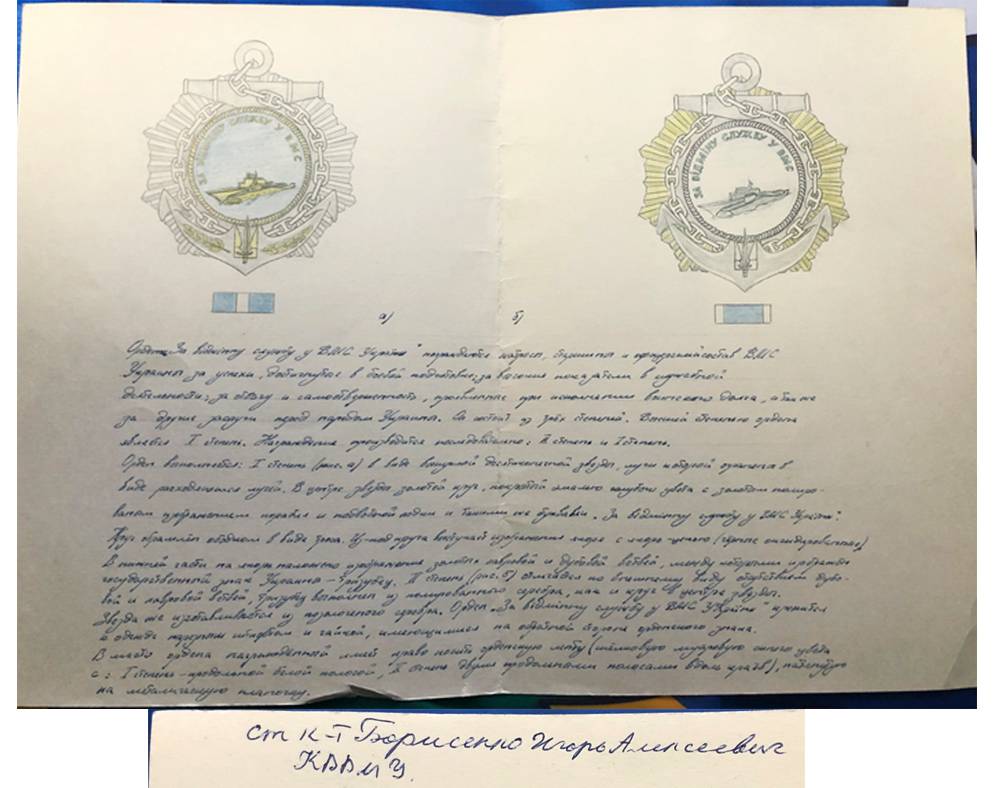 ЗА ВІДМІНУ СЛУЖБУ У ВМС
ЗА ВІДМІНУ СЛУЖБУ У ВМС
а) б)
Орден „За відмінну службу у ВМС України" награждаются матросы, старшины и офицерский состав ВМС
Украины за успехи, достигнутые в боевой подготовке; за высокие показатели в служебной
деятельности; за отвагу и самоотверженность, проявленные при исполнении воинского долга, а так же
за другие заслуги перед народом Украины. Он состоит из двух степеней. Высшей степенью ордена
является I степень. Награждение производится последовательно: II степень и I степень.
Орден выполняется: I степень (рис. а) в виде выпуклой десятиконечной звезды, лучи которой
виде расходящихся лучей. В центре звезды золотой круг, покрытый эмалью голубого цвета с золотым полиро-
ванным изображением корабля и подводной лодки и такими же буквами „За відмінну службу у ВМС України".
Круг обрамлён ободком в виде троса. Из-под круга выступает изображение якоря с якорь-цепью (серебро оксидированное)
В нижней части на якорь наложено изображение золотых лавровой и дубовой ветвей, между которыми изображён
государственный знак Украины – тризубец. II степень (рис. б) отличается по внешнему виду отсутствием дубо-
вой и лавровой ветвей, тризубец выполнен из полированного серебра, как и круг в центре звезды.
Звезда же изготавливается из позолоченного серебра. Орден „За відмінну службу у ВМС України" крепится
к одежде нарезным штифтом и гайкой, имеющимися на обратной стороне орденского знака.
В место ордена награждённый имеет право носить орденскую ленту (шёлковую муаровую синего цвета
с: I степень – продольной белой полосой, II степень двумя продольными полосами вдоль краёв),
на металлическую планочку.
ст к-т Борисенко Игорь Алексеевич
КВВМУ.